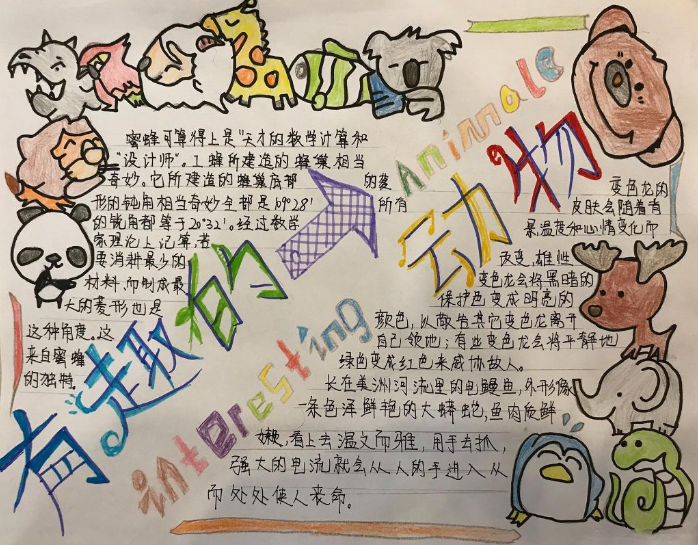 蜜蜂可算得上是"天才的数学计算和
设计师"。工蜂所建造的蜂巢相当
奇妙。它所建造的蜂巢底部 的菱
形的钝角相当奇妙全都是109°28′ 所有
的锐角都等于20°32′。经过数学
家理论上记算若
要消耗最少的
材料,而制成最
大的菱形也是
这种角度。这
来自蜜蜂
的独特.
有趣的动物
interesting Animale
变色龙的
皮肤会随着有
景,温度和心情变化而
改变。雄性
变色龙会将黑暗的
保护色变成明亮的
颜色,以敵告其它变色龙离开
自己领地;有些变色龙会将平静地
绿色变成红色来威协敌人。
长在美洲河流里的电鳗鱼,外形像
一条色泽鲜艳的大蟒蛇,鱼肉质鲜
嫩,看上去温文而雅,用手去抓,
强大的电流就会从人的手进入从
而处处使人丧命。